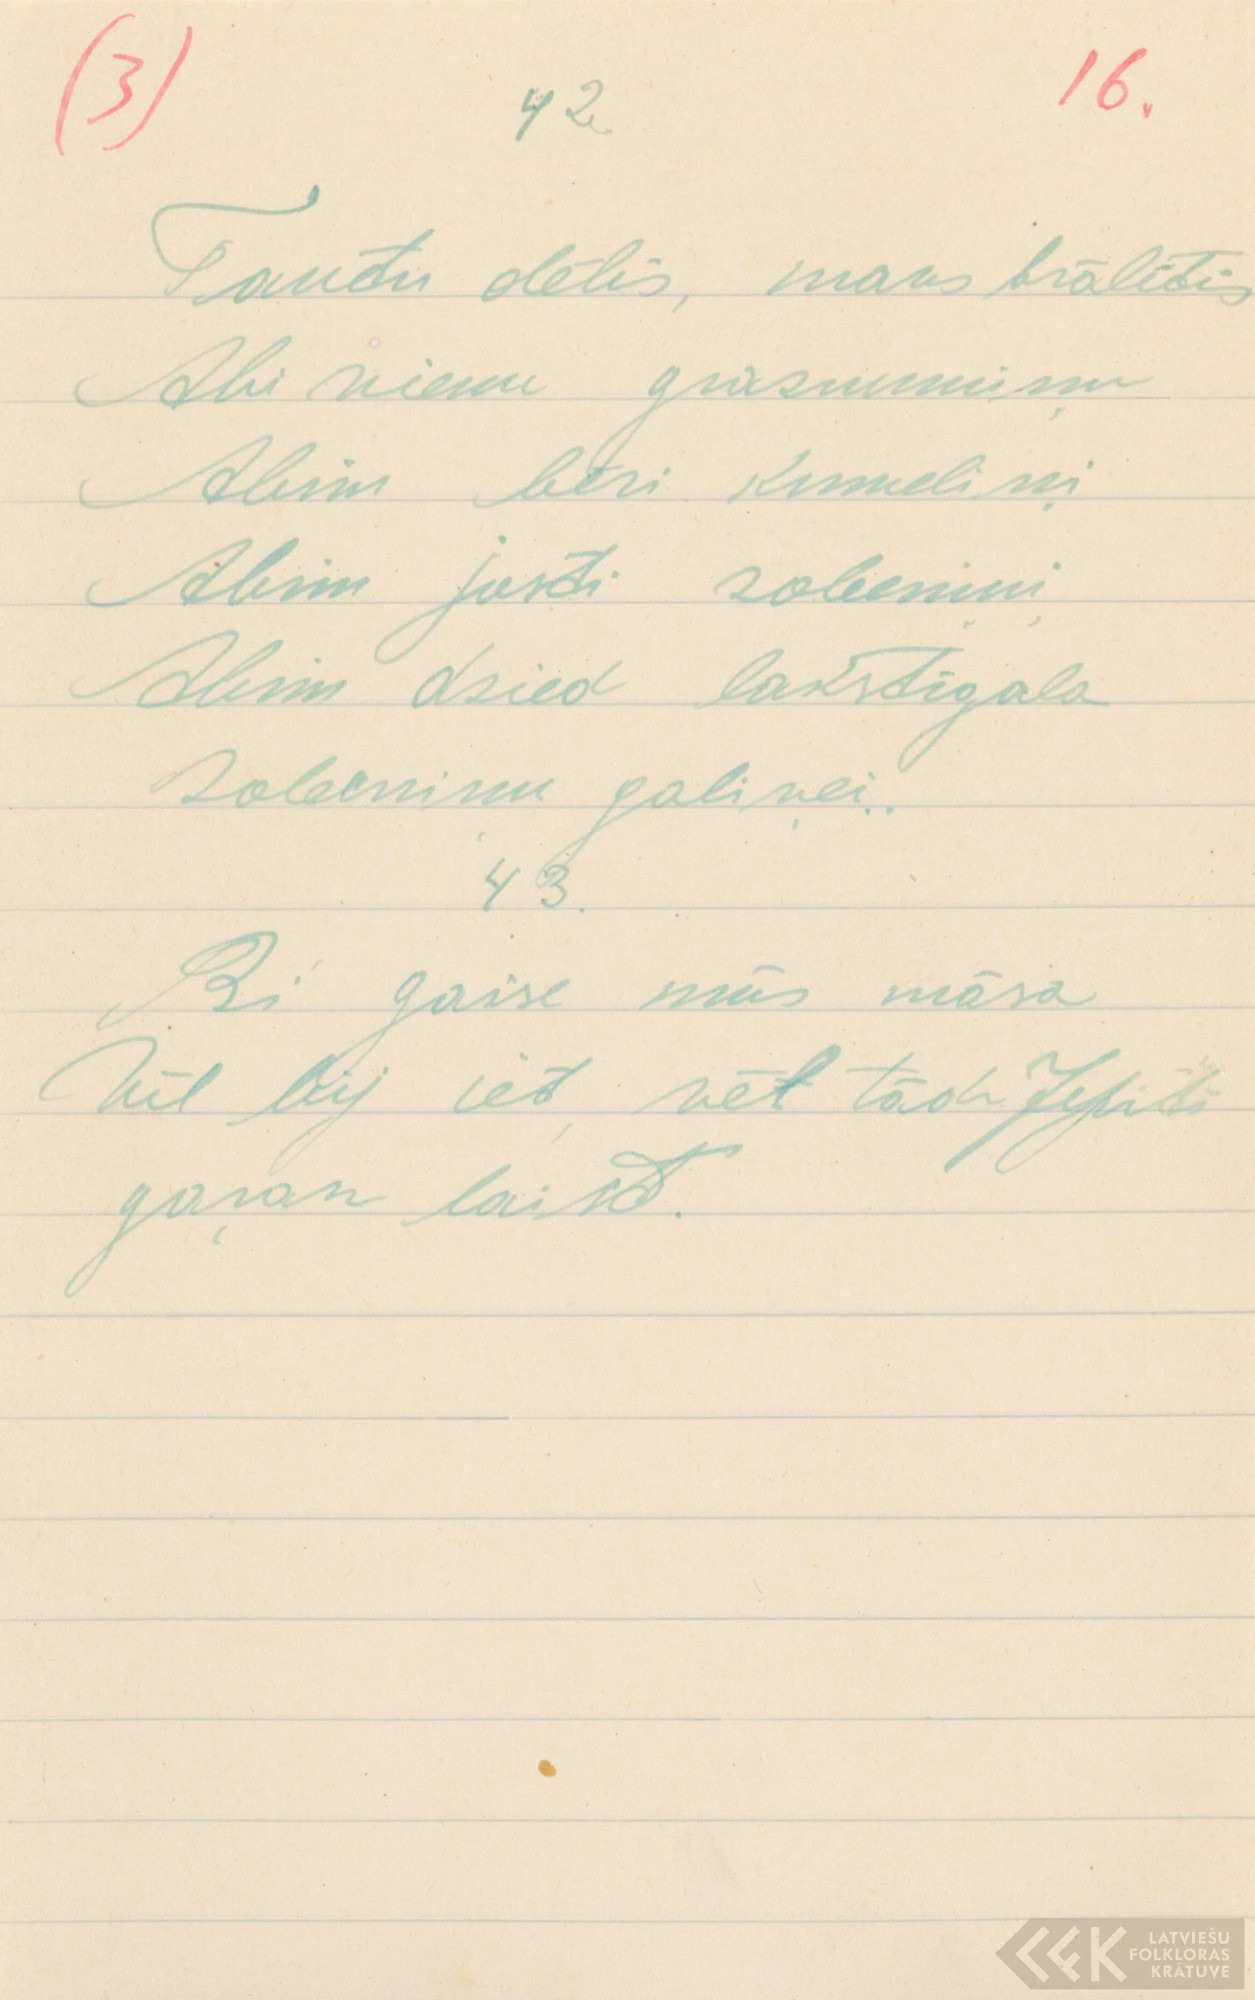 (3)
42
16.
Tautu dēlis, mans brālītis
Abi vienu grāznumiņu
Abim bēri kumeliņi
Abim josti zobeniņi
Abim dzied lakstīgala
zobeniņu galiņei..
43.
gaise mūs māsa
bij iet, vēl tādu
gaŗan laist.
LATVIEŠU
FOLKLORAS
KRĀTUVE